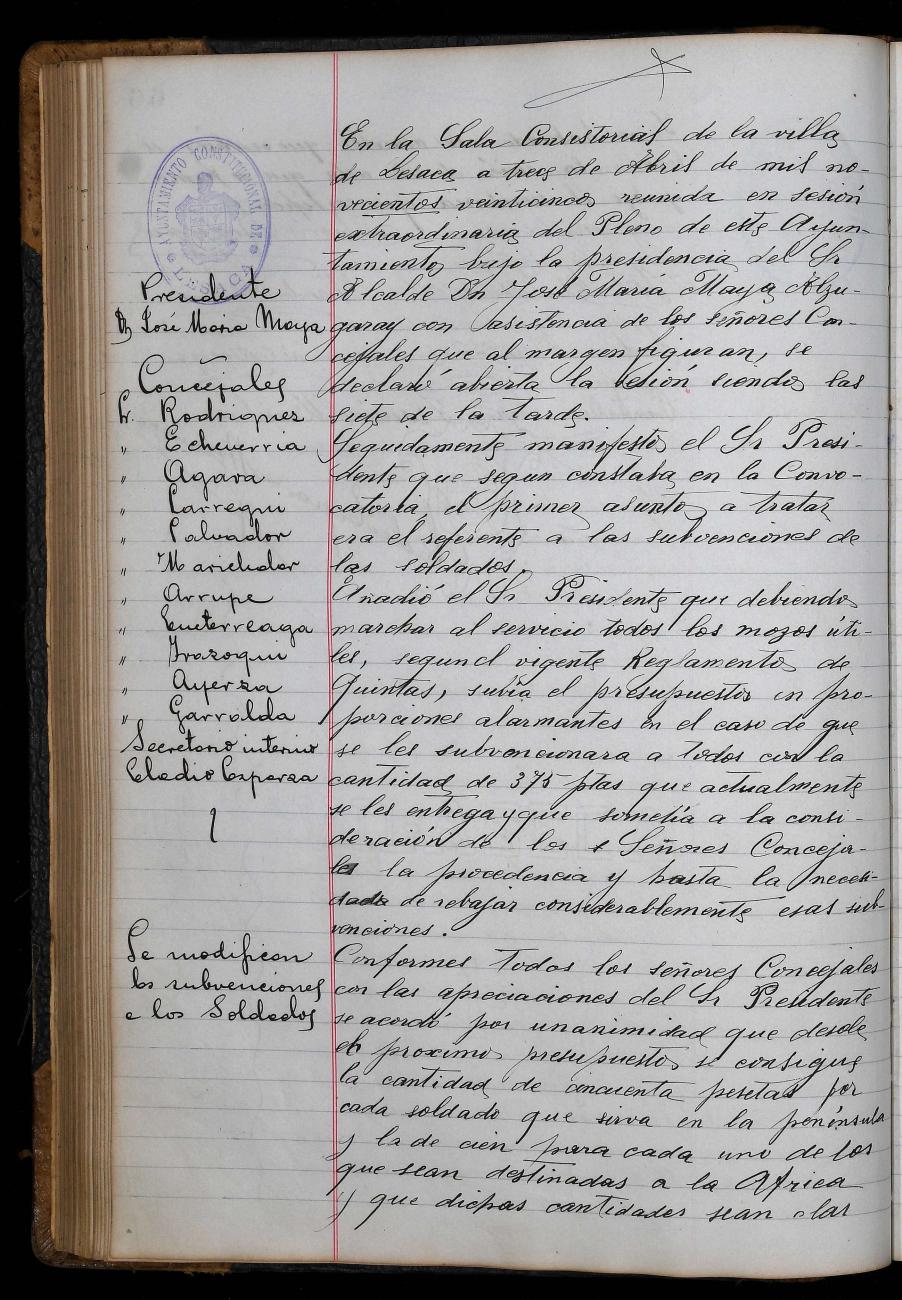 AYUNTAMIENTO CONSTITUCIONAL DE
LESACA
Presidente
Dn José Maria Maya
Concejales
Sr. Rodriguez
" Echeverria
" Agara
" Larregui
" Salvador
" Marichalar
" Arrupe
" Irazoqui
" Ayerza
" Garralda
Secretario interino
Eladio Esparza
Se modifican
las subvenciones
a los Soldados
En la Sala Consistorial de la villa
de Lesaca a trece de Abril de mil no-
vecientos veinticinco reunida en sesión
extraordinaria del Pleno de este Ayun-
tamiento bajo la presidencia del Sr
Alcalde Dn José Maria Maya Alzu-
garay con asistencia de los señores Con-
cejales que al margen figuran, se
declaró abierta la sesión siendo las
siete de la tarde.
Seguidamente manifestó el Sr Presi-
dente que segun constaba en la Convo-
catoria, el primer asunto a tratar
era el referente a las subvenciones de
las soldados.
Anadió el Sr Presidente que debiendo
marchar al servicio todos los mozos úti-
les, segun el vigente Reglamento de
Quintas, subia el presupuesto en pro-
porciones alarmantes en el caso de que
se les subvencionara a todos con la
cantidad de 375 ptas que actualmente
se les entrega y que sometia a la consi-
deración de los Señores Conceja-
les la procedencia y hasta la necesi-
dada de rebajar considerablemente esas sub-
venciones.
Conformes todos los señores Concejales
con las apreciaciones del Sr Presidente
se acordó por unanimidad que desde
el proximo presupuesto se consigne
la cantidad de cincuenta pesetas por
cada soldado que sirva en la península
y la de cien para cada uno de los
que sean destinadas a la Africa
y que dichas cantidades sean a las